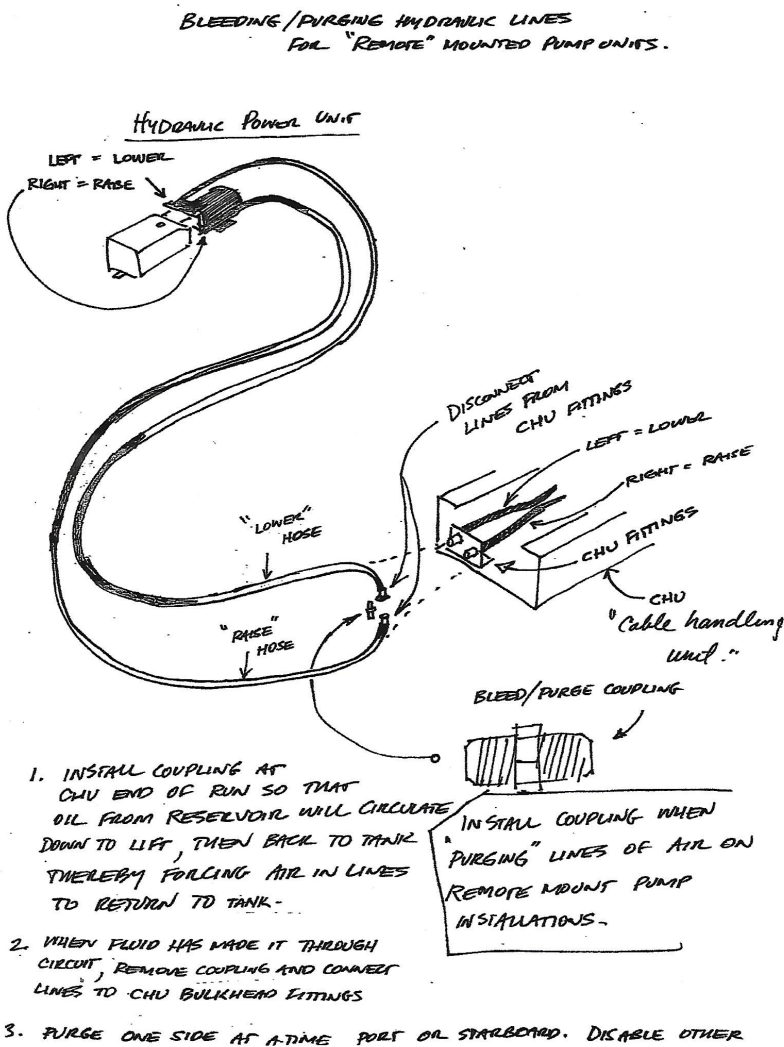 BLEEDING/PURGING HYDRAULIC LINES
FOR "REMOTE" MOUNTED PUMP UNITS.
HYDRAULIC POWER UNIT
LEFT = LOWER
RIGHT = RAISE
DISCONNECT
LINES FROM
CHU FITTINGS
LEFT = LOWER
RIGHT = RAISE
CHU FITTINGS
CHU
"Cable handling
unit."
"LOWER"
HOSE
"RAISE"
HOSE
BLEED/PURGE COUPLING
1. INSTALL COUPLING AT
CHU END OF RUN SO THAT
OIL FROM RESERVOIR WILL CIRCULATE
DOWN TO LIFT, THEN BACK TO TANK
THEREBY FORCING AIR IN LINES
TO RETURN TO TANK-
INSTALL COUPLING WHEN
"PURGING" LINES OF AIR ON
REMOTE MOUNT PUMP
INSTALLATIONS-
2. WHEN FLUID HAS MADE IT THROUGH
CIRCUIT, REMOVE COUPLING AND CONNECT
LINES TO CHU BULKHEAD FITTINGS
3. PURGE ONE SIDE AT A TIME PORT OR STARBOARD. DISABLE OTHER